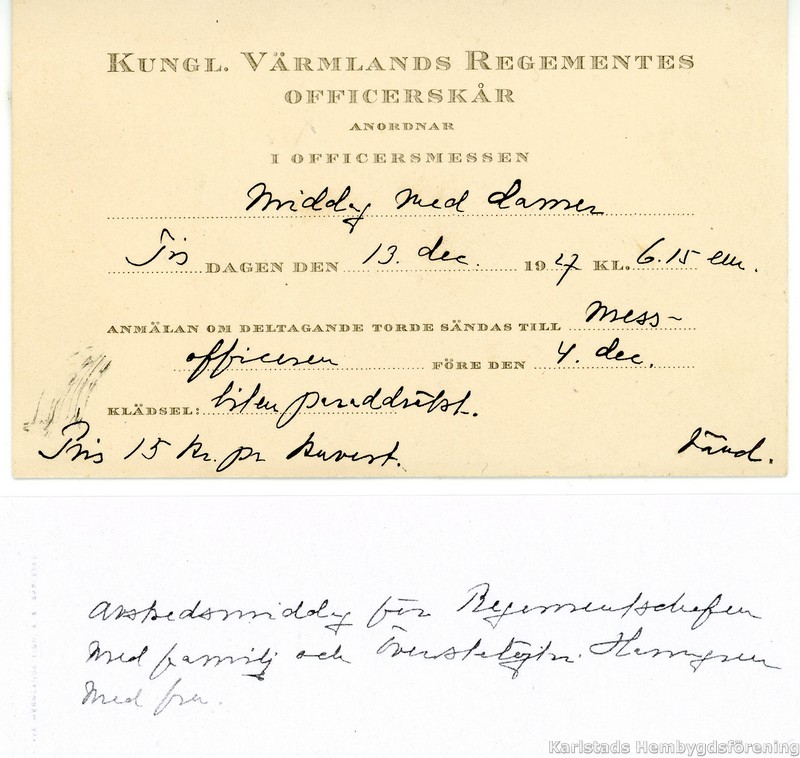 KUNGL. VÄRMLANDS REGEMENTES
OFFICERSKÅR
ANORDNAR
I OFFICERSMESSEN
Middag med damer
Tis DAGEN DEN 13. dec. 1927 KL. 6.15 em.
ANMÄLAN OM DELTAGANDE TORDE SÄNDAS TILL Mess-
officeren FÖRE DEN 4. dec.
KLÄDSEL: liten paraddräkt.
Pris 15 kr. pr kuvert. Vänd.
Avskedsmiddag för Regementschefen
med familj och Överstelöjtn.
med fru.
Karlstads Hembygdsförening